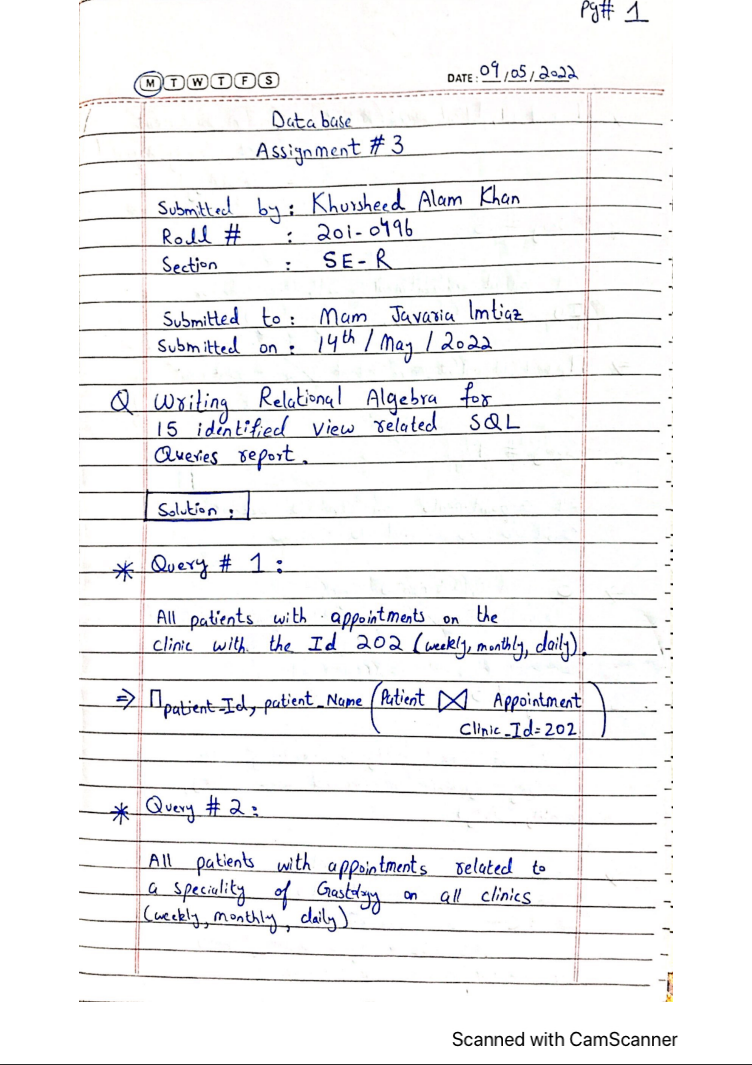 Pg# 1
M T W T F S
DATE: 09/05/2022
Database
Assignment # 3
Submitted by : Khursheed Alam Khan
Roll # : 20i-0496
Section : SE-R
Submitted to : Mam Javaria Imtiaz
Submitted on : 14th / May / 2022
Q Writing Relational Algebra for
15 identified view related SQL
Queries report.
Solution :
* Query # 1 :
All patients with appointments on the
clinic with the Id 202 (weekly, monthly, daily).
⇒ Π patient_Id, patient_Name (Patient ⋈ Appointment
Clinic_Id=202)
* Query # 2 :
All patients with appointments related to
a speciality of on all clinics
(weekly, monthly, daily)
Scanned with CamScanner